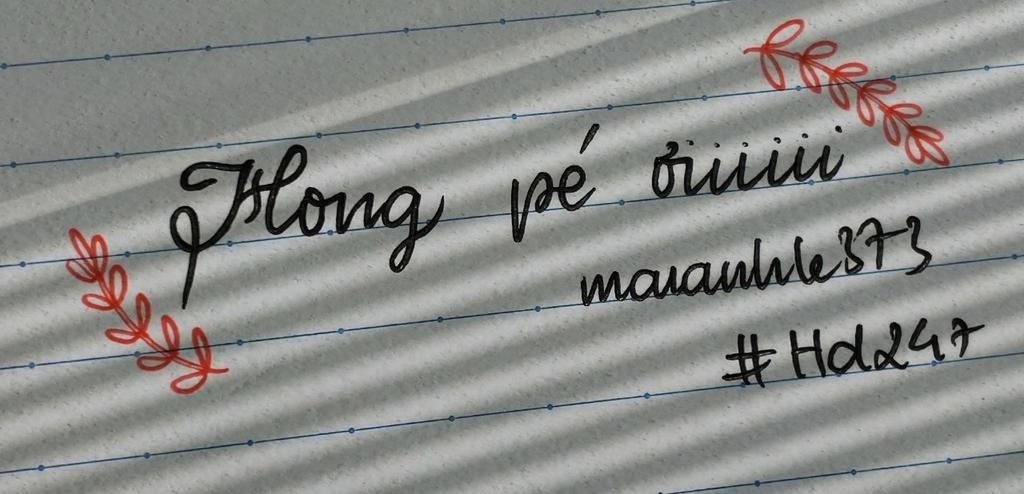 Hong pé ơiiiiii
maianhle373
#Hd247